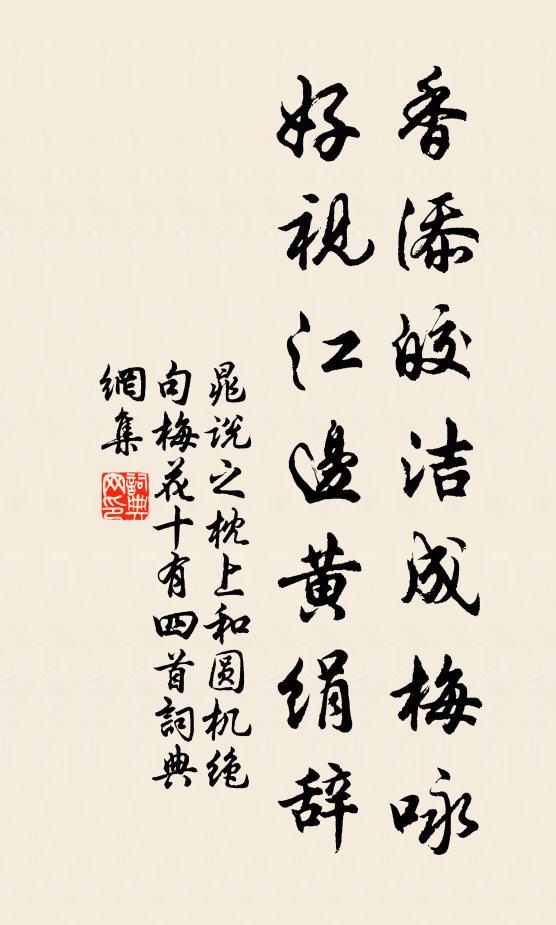 香添皎洁成梅咏
好视江邊黄绢辞
晁说之枕上和圆机绝
句梅花十有四首詞典
網集
詞典
网印